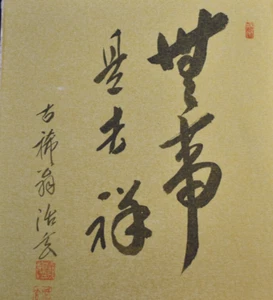 無事
是吉祥
古稀翁浩玄